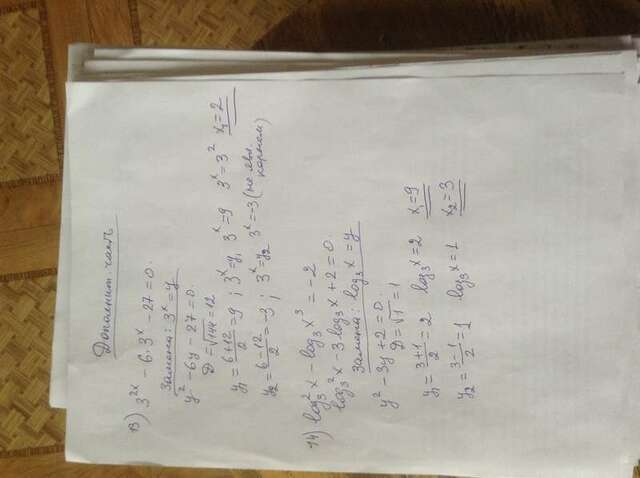 Дополнит. часть
13) 3^2x - 6·3^x - 27 = 0.
Замена: 3^x = y
y² - 6y - 27 = 0.
D = √144 = 12
y₁ = (6+12)/2 = 9; 3^x = y₁ 3^x = 9 3^x = 3² x₁ = 2
y₂ = (6-12)/2 = -3; 3^x = y₂ 3^x = -3 (не явл. корнем)
14) log₃²x - log₃x³ = -2
log₃²x - 3log₃x + 2 = 0.
Замена: log₃x = y
y² - 3y + 2 = 0.
D = √1 = 1
y₁ = (3+1)/2 = 2 log₃x = 2 x₁ = 9
y₂ = (3-1)/2 = 1 log₃x = 1 x₂ = 3